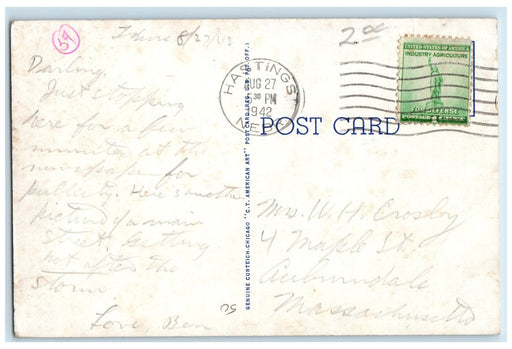 59
Thurs 8/27/42
2oc
Darling,
Just stopping
here for a few
minutes at the
newspaper for
publicity. Here's another
picture of a main
street. Getting
hot after the
storm.
Love, Ben
50
HASTINGS
AUG 27
30 PM
1942
NEBR
UNITED STATES OF AMERICA
INDUSTRY AGRICULTURE
FOR DEFENSE
POSTAGE 1 CENT
POST CARD
GENUINE CURTEICH-CHICAGO "C.T. AMERICAN ART" POST CARD (REG. U.S. PAT. OFF.)
Mrs. W. H. Crosby
4 Maple St.
Auburndale
Massachusetts